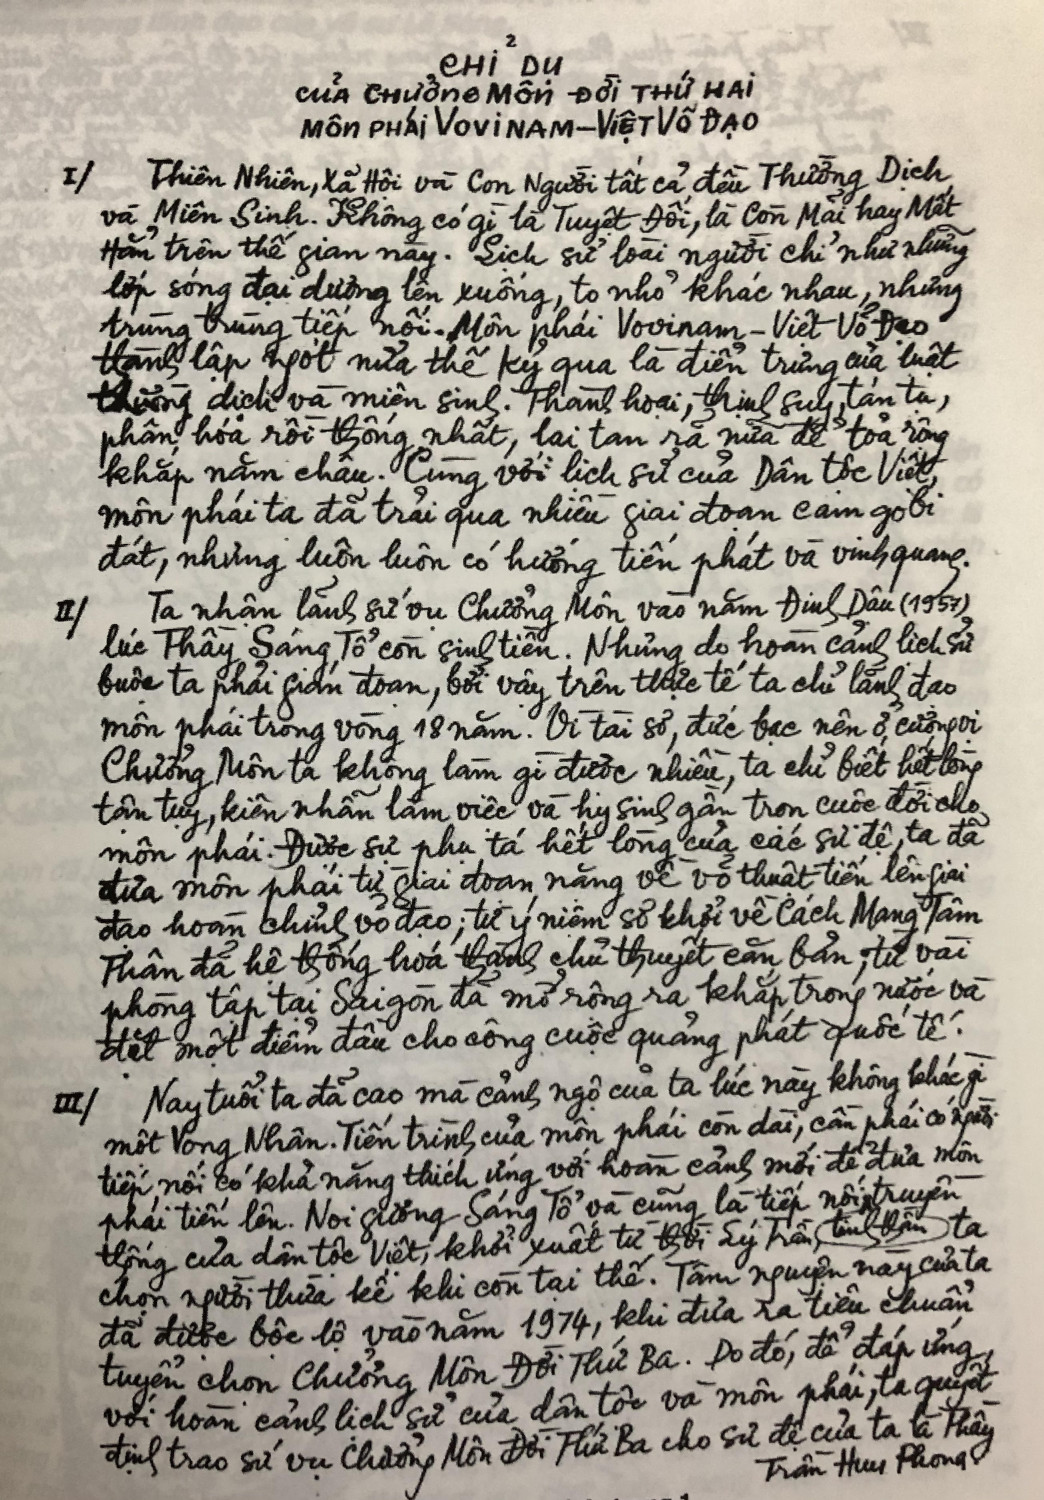 CHỈ DỤ
CỦA CHƯỞNG MÔN ĐỜI THỨ HAI
MÔN PHÁI VOVINAM – VIỆT VÕ ĐẠO
I/ Thiên Nhiên, Xã Hội và Con Người tất cả đều Thường Dịch
và Miên Sinh. Không có gì là Tuyệt Đối, là Còn Mãi hay Mất
Hẳn trên thế gian này. Lịch sử loài người chỉ như những
lớp sóng đại dương lên xuống, to nhỏ khác nhau, nhưng
trùng trùng tiếp nối. Môn phái Vovinam – Việt Võ Đạo
thành lập ngót nửa thế kỷ qua là điển trưng của luật
thường dịch và miên sinh. Thành hoại, thịnh suy, tán tụ,
phân hóa rồi thống nhất, lại tan rã nữa để toả rộng
khắp năm châu. Cùng với lịch sử của Dân tộc Việt,
môn phái ta đã trải qua nhiều giai đoạn cam go bi
đát, nhưng luôn luôn có hướng tiến phát và vinh quang.
II/ Ta nhận lãnh sứ vụ Chưởng Môn vào năm Đinh Dậu (1957)
lúc Thầy Sáng Tổ còn sinh tiền. Nhưng do hoàn cảnh lịch sử
buộc ta phải gián đoạn, bởi vậy trên thực tế ta chỉ lãnh đạo
môn phái trong vòng 18 năm. Vì tài sơ, đức bạc nên ở cương vị
Chưởng Môn ta không làm gì được nhiều, ta chỉ biết hết lòng
tận tụy, kiên nhẫn làm việc và hy sinh gần trọn cuộc đời cho
môn phái. Được sự phụ tá hết lòng của các sư đệ, ta đã
đưa môn phái từ giai đoạn nặng về võ thuật tiến lên giai
đoạn hoàn chỉnh võ đạo; từ ý niệm sơ khởi về Cách Mạng Tâm
Thân đã hệ thống hoá thành chủ thuyết căn bản; từ vài
phòng tập tại Saigon đã mở rộng ra khắp trong nước và
đặt một điểm đầu cho công cuộc quảng phát quốc tế.
III/ Nay tuổi ta đã cao mà cảnh ngộ của ta lúc này không khác gì
một Vong Nhân. Tiến trình của môn phái còn dài, cần phải có người
tiếp nối có khả năng thích ứng với hoàn cảnh mới để đưa môn
phái tiến lên. Noi gương Sáng Tổ và cũng là tiếp nối truyền
thống của dân tộc Việt, khởi xuất từ thời Lý Trần, tinh thần ta
chọn người thừa kế khi còn tại thế. Tâm nguyện này của ta
đã được bộc lộ vào năm 1974, khi đưa ra tiêu chuẩn
tuyển chọn Chưởng Môn Đời Thứ Ba. Do đó, để đáp ứng
với hoàn cảnh lịch sử của dân tộc và môn phái, ta quyết
định trao sứ vụ Chưởng Môn Đời Thứ Ba cho sư đệ của ta là Thầy
Trần Huy Phong